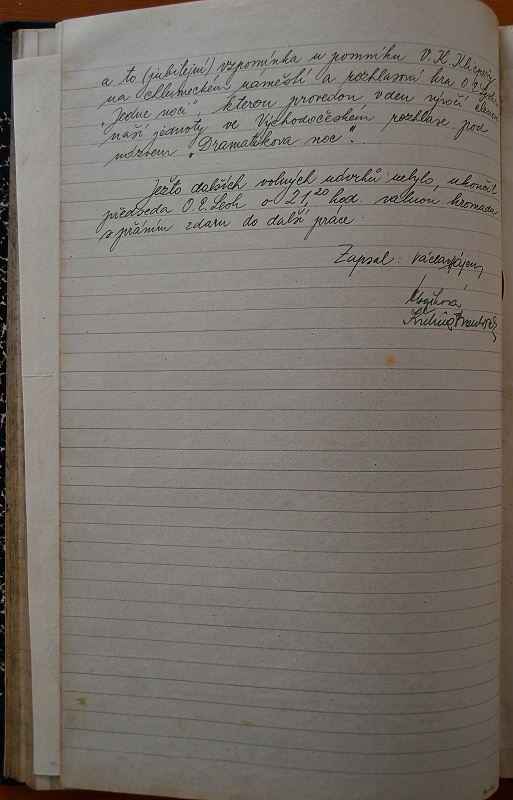 a to (jubilejní) vzpomínka u pomníku V. K. Klicpery
na chlumeckém náměstí a rozhlasová hra O. E.
"Jedné noci" kterou provedou v den výročí členové
naší jednoty ve Východočeském rozhlase pod
názvem "Dramatikova noc".
Ježto dalších volných návrhů nebylo, ukončil
předseda O. E. Lesh o 21,20 hod. valnou hromadu
s přáním zdaru do další práce.
Zapsal: Václav